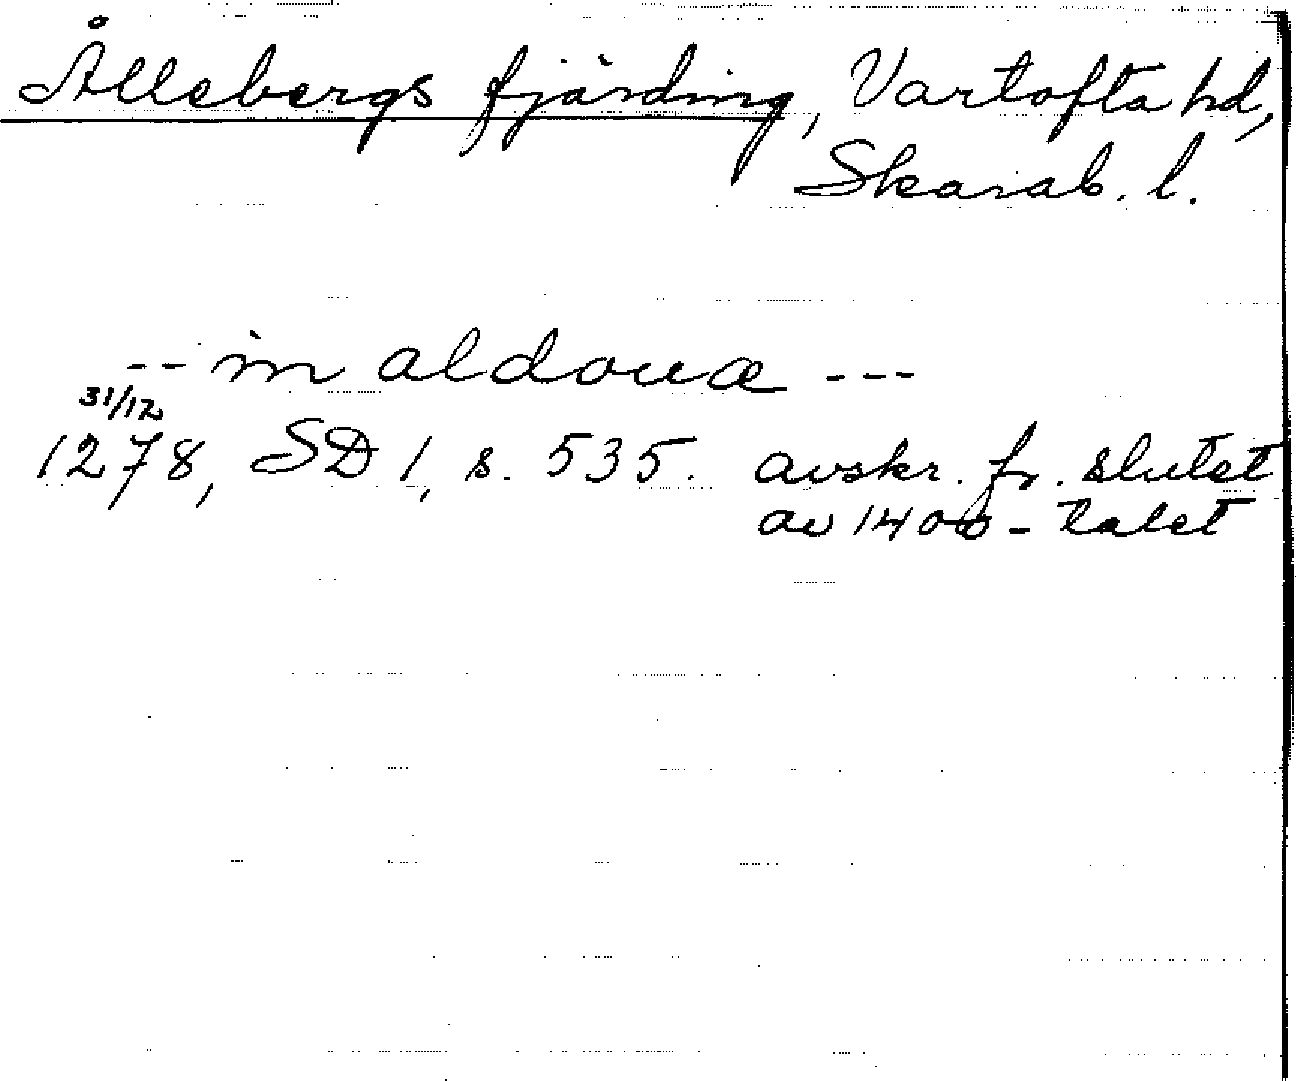 Ållebergs fjärding, Vartofta hd,
Skarab. l.
-- in aldouæ ---
31/12
1278, SD 1, s. 535. avskr. fr. slutet
av 1400-talet